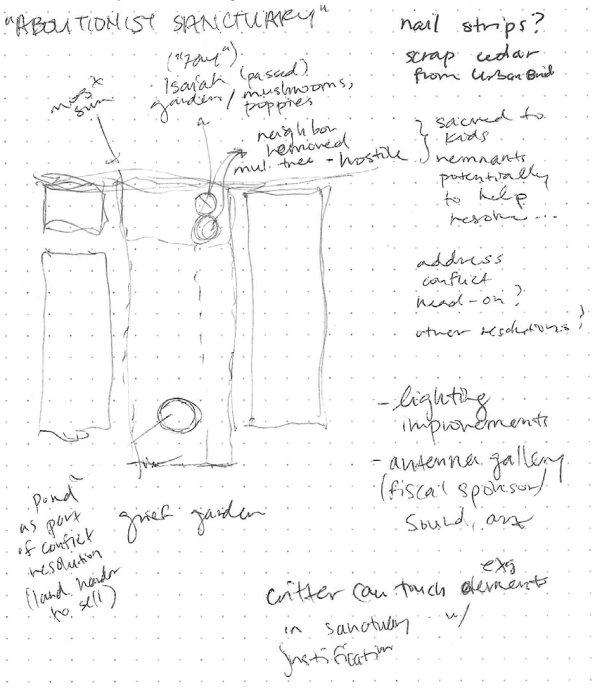 "ABOLITIONIST SANCTUARY"
nail strips?
scrap cedar
from Urban Bird
("Zay")
Isaiah (passed)
garden / mushrooms,
poppies
most
sun
neighbor
removed
mul. tree - hostile
sacred to
kids
remnants
potentially
to help
resolve...
address
conflict
head-on?
other resolutions?
- lighting
improvements
- antenna gallery
(fiscal sponsor)
sound, art
Pond
as part
of conflict
resolution
(land harder
to sell)
grief garden
exs
critter can touch elements
in sanctuary w/
justification